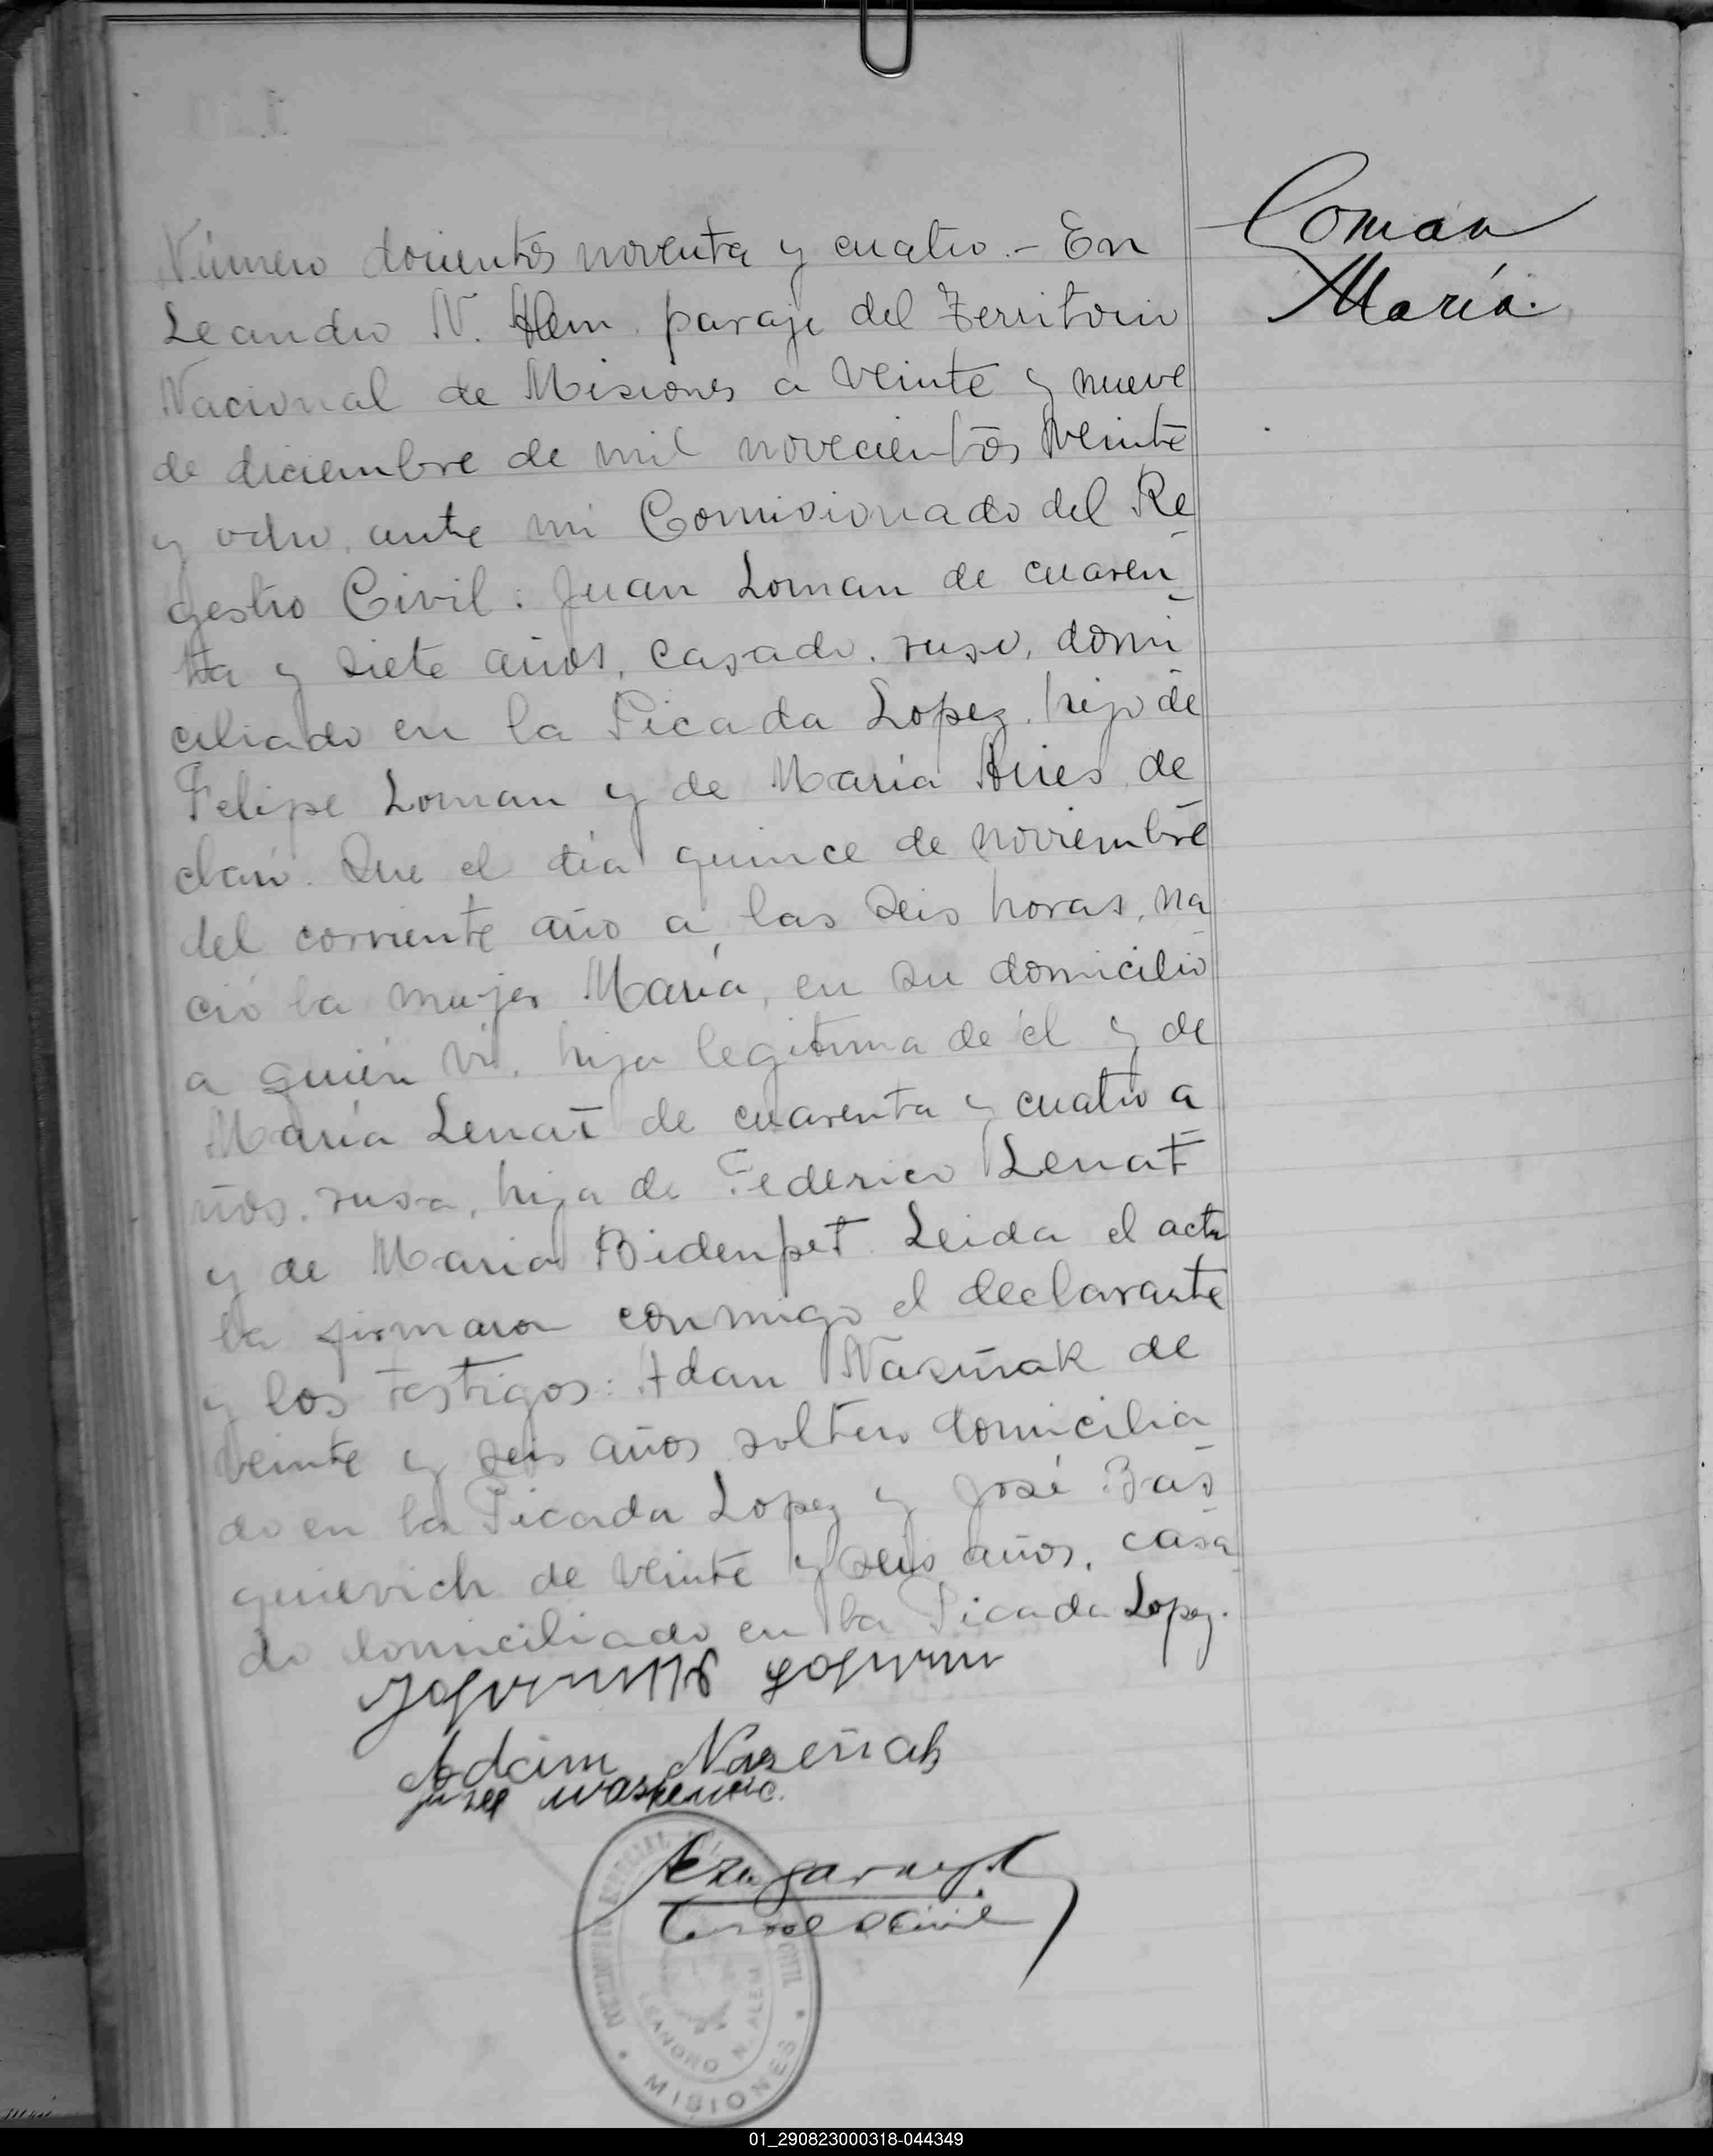 Loman
María.
Número docientos noventa y cuatro.- En
Leandro N. Alem paraje del Territorio
Nacional de Misiones a veinte y nueve
de diciembre de mil novecientos veinte
y ocho, ante mi Comisionado del Re
gestro Civil: Juan Loman de cuaren
ta y siete años, casado, ruso, domi
ciliado en la Picada Lopez, hijo de
Felipe Loman y de María Aires, de
claró. Que el día quince de noviembre
del corriente año a las seis horas, na
ció la mujer María, en su domicilio
a quién vi, hija legitima de él y de
María Lenat de cuarenta y cuatro a
ños, rusa, hija de Federico Lenat
y de Maria Bidenpet. Leida el acta
la firmaron conmigo el declarante
y los testigos: Adan Nazuñak de
veinte y seis años soltero domicilia
do en la Picada Lopez y José Bas
quievich de veinte y seis años, casa
do domiciliado en la Picada Lopez.
Adam
LEANDRO N. ALEM
MISIONES
CIVIL
01_290823000318-044349